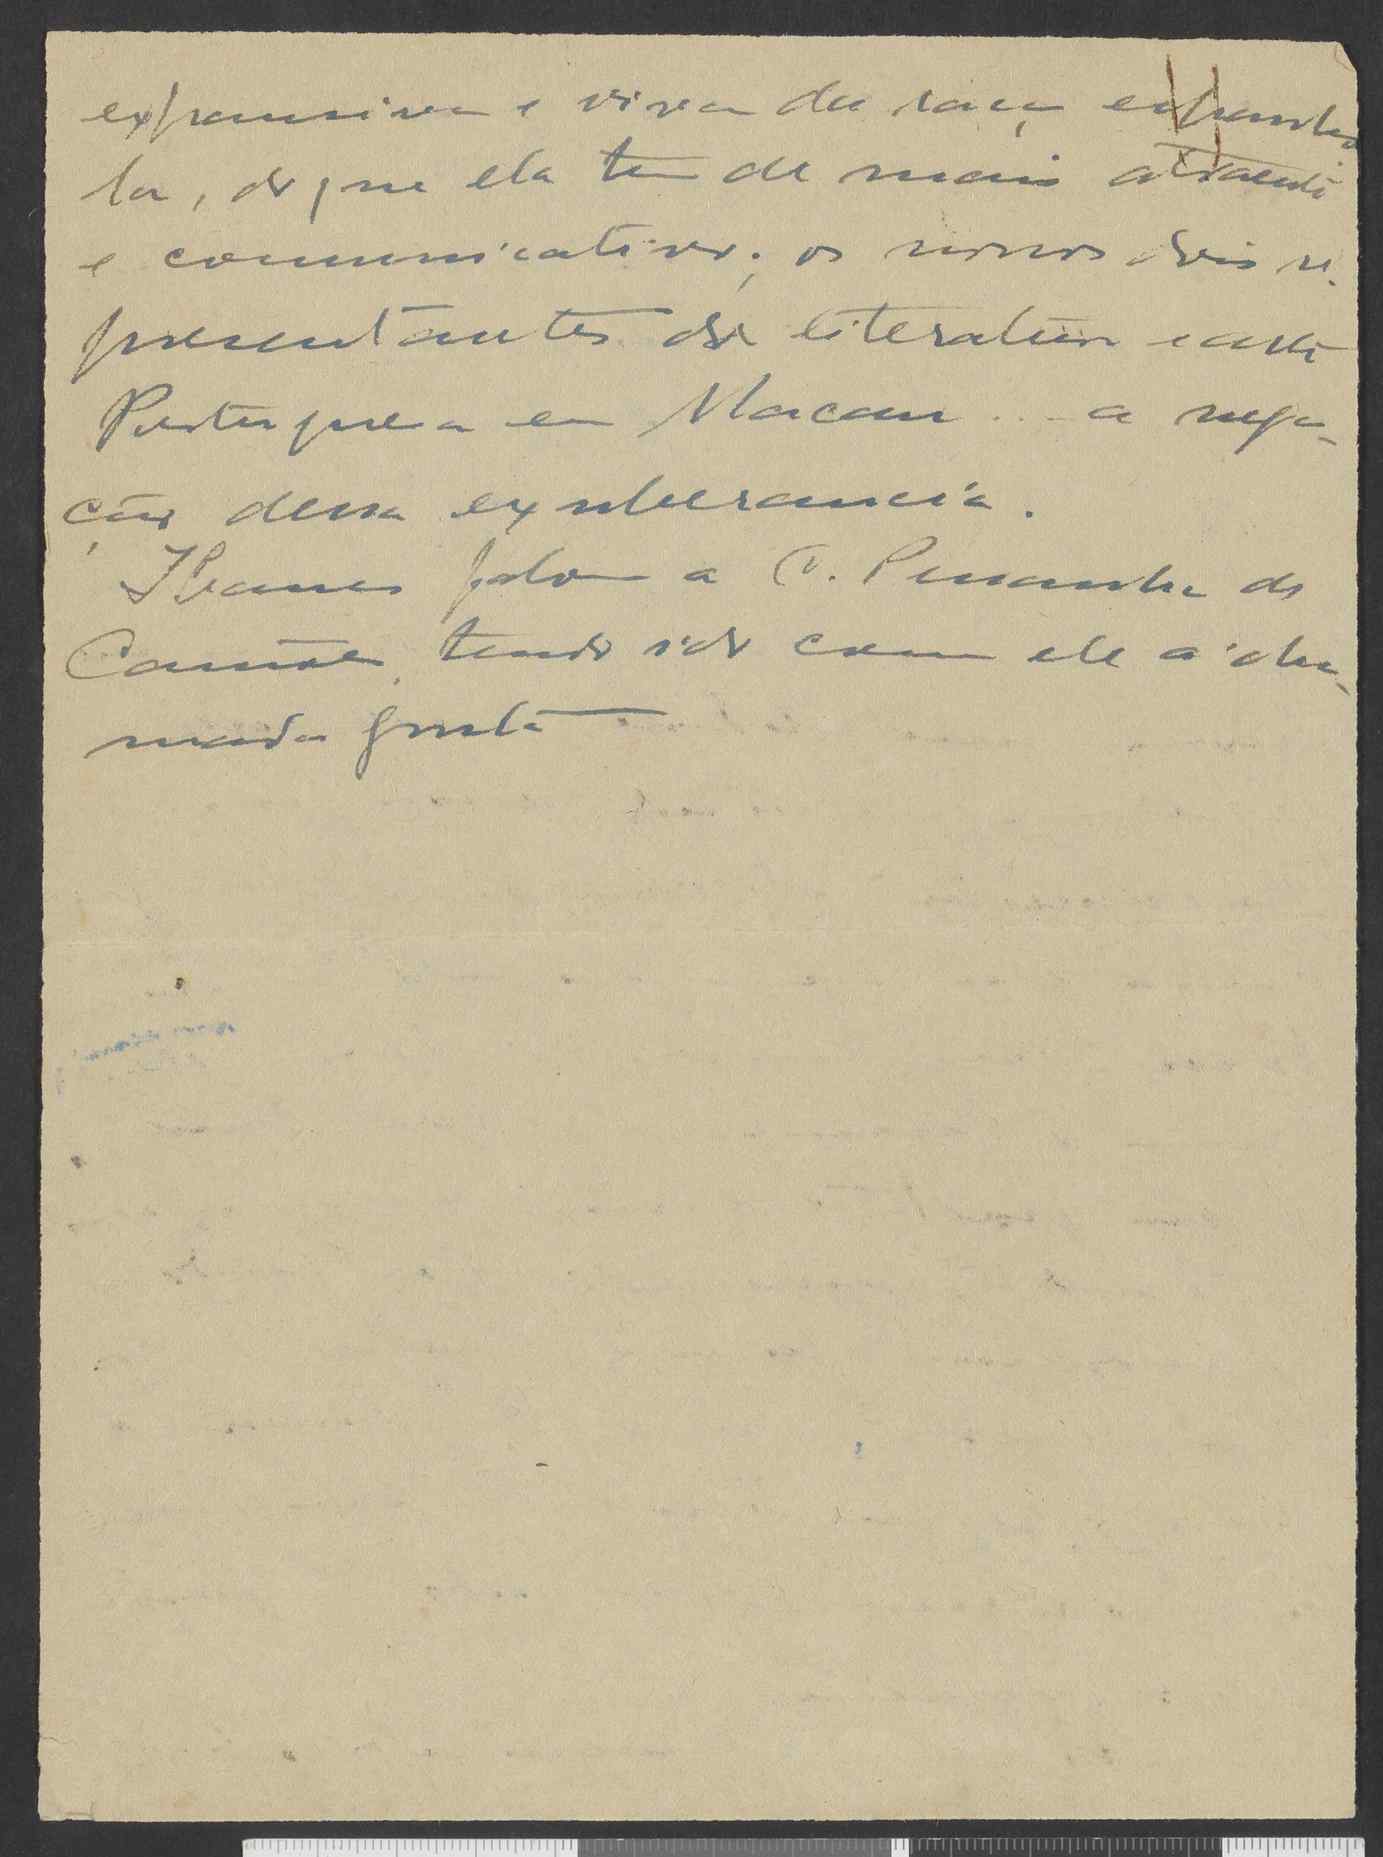 expansiva e viva da raça espanho
la, do que ela tem de mais atraente
e comunicativo; os nossos dois re
presentantes da literatura
Portuguesa em Macau ... a nega-
ção dessa exuberancia.
Ibanes falou a C. Pessanha de
Camões, tendo ido com ele á cha-
mada gruta